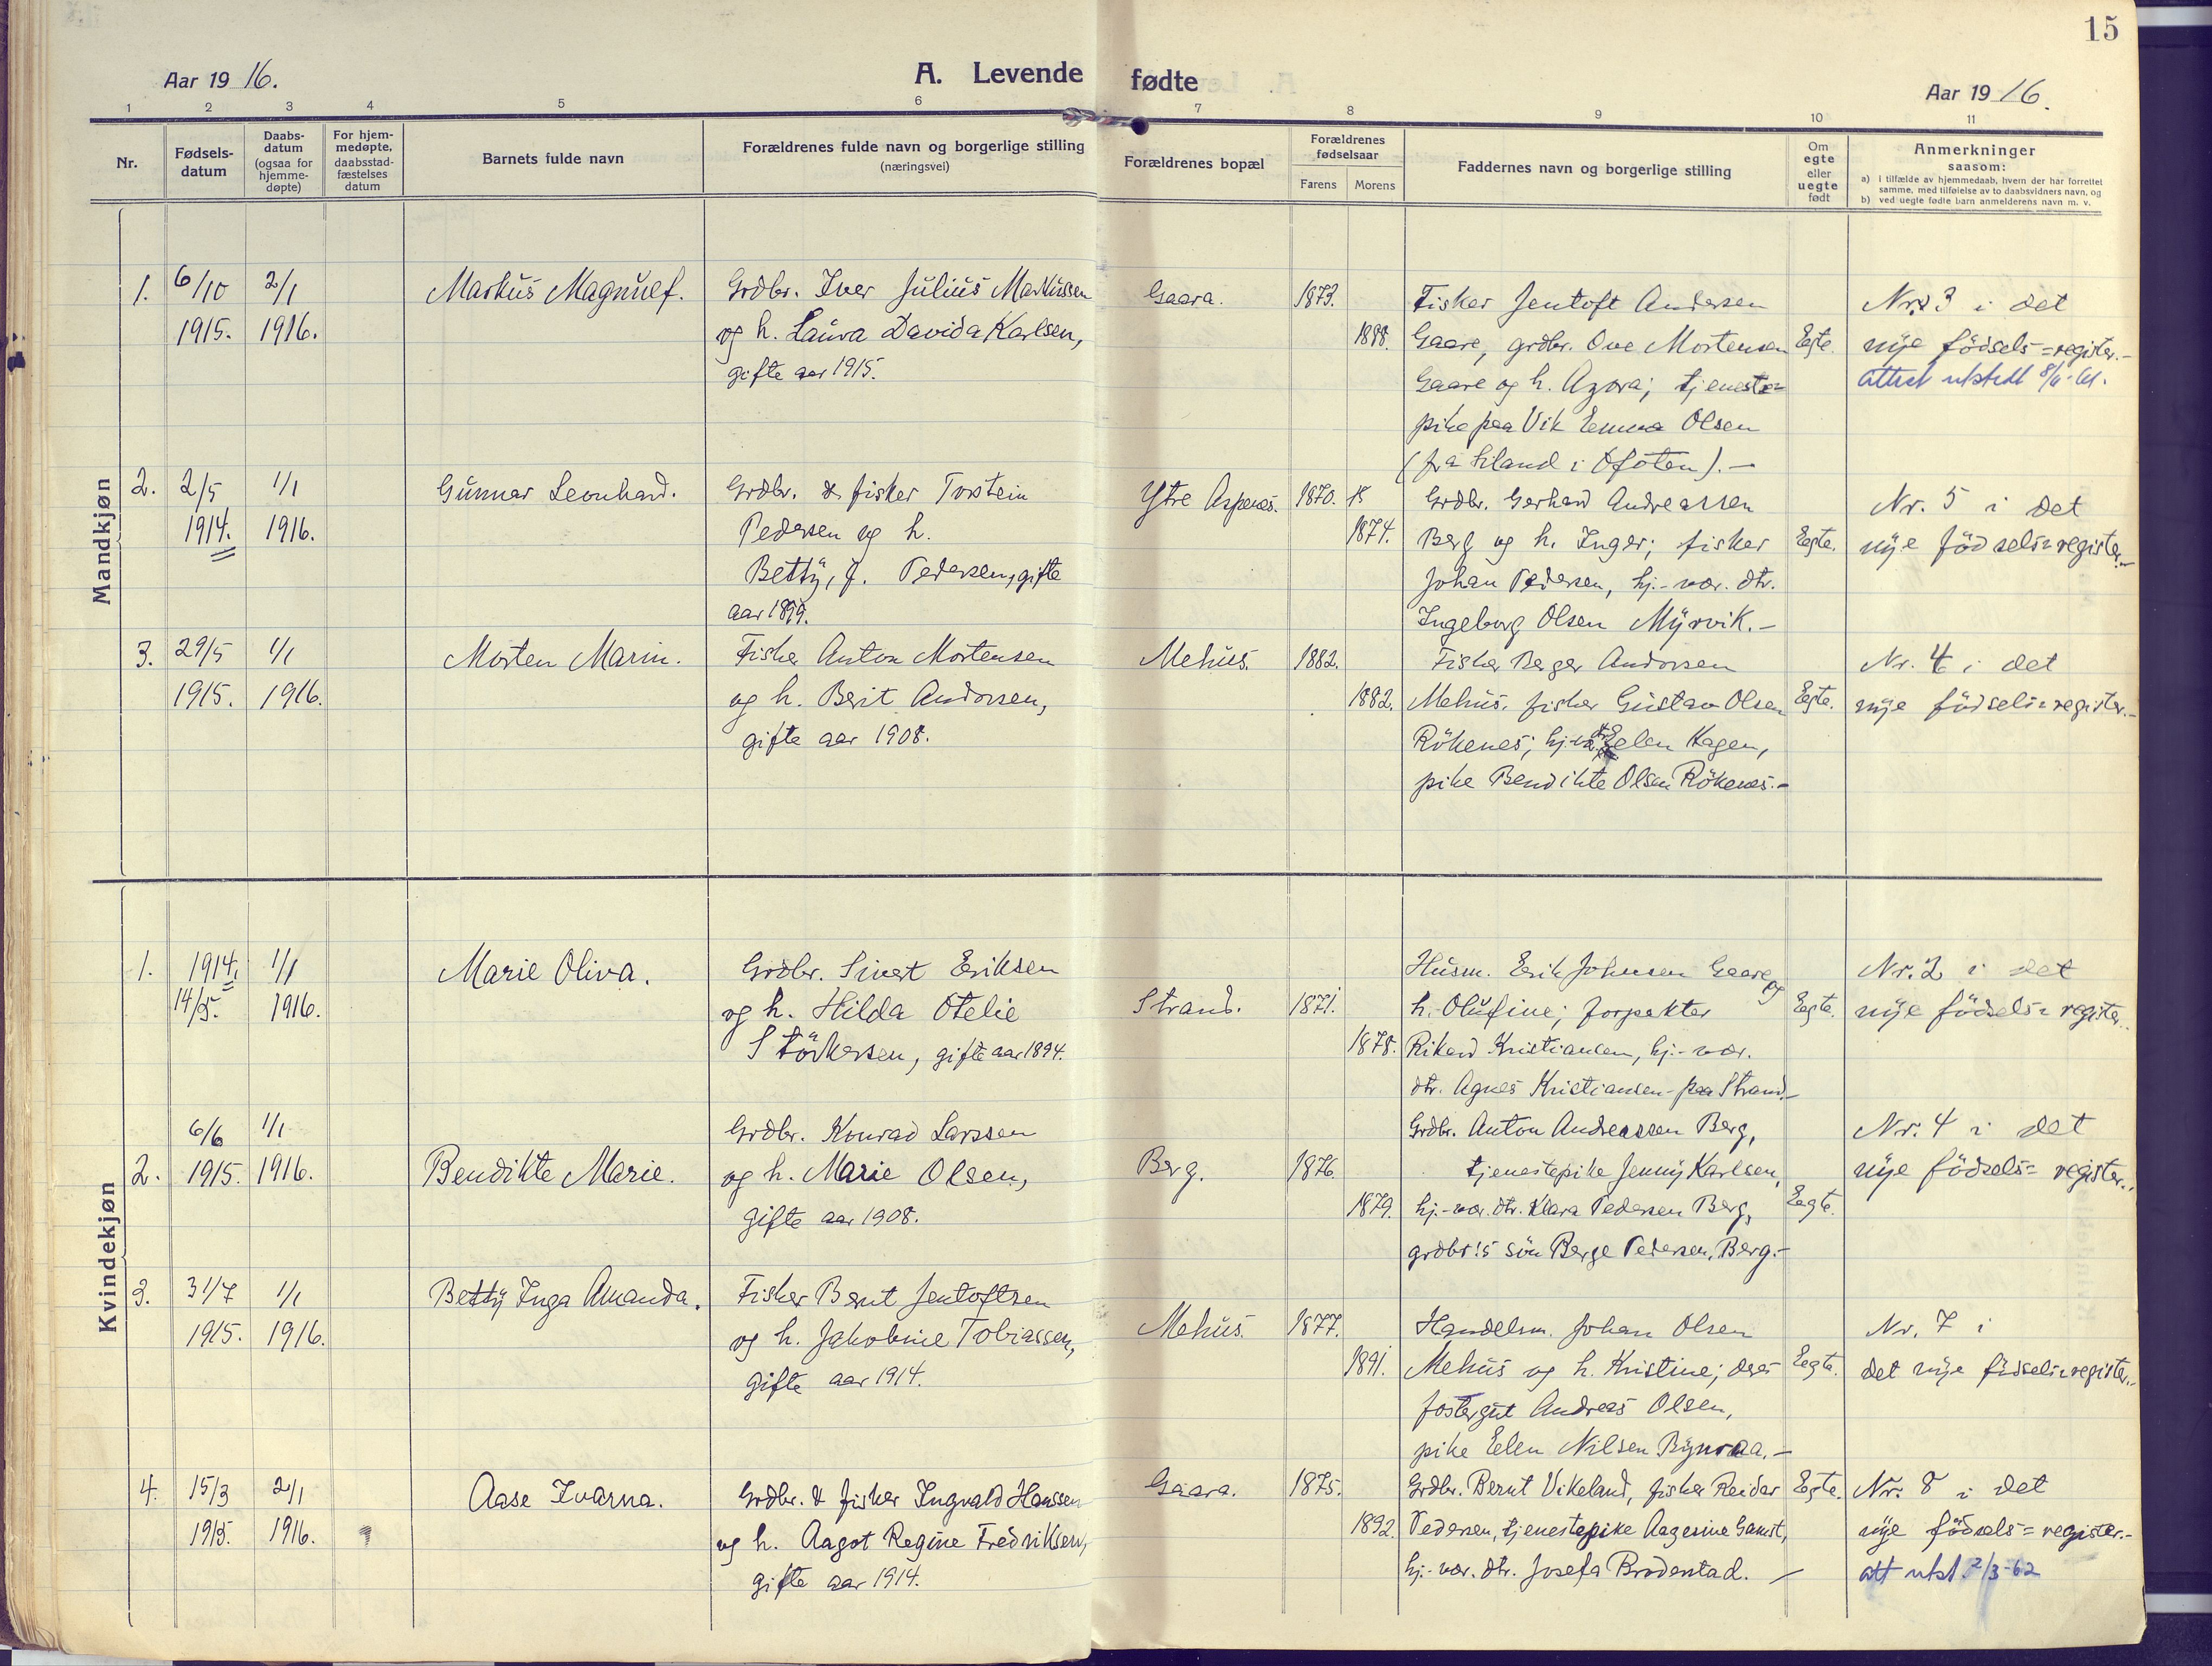 15
Aar 1916.
A. Levende fødte
Aar 1916.
1 2 3 4 5 6 7 8 9 10 11
Nr.
Fødsels-
datum
Daabs-
datum
(ogsaa for
hjemme-
døpte)
For hjem-
medøpte,
daabsstad-
fæstelses
datum
Barnets fulde navn
Forældrenes fulde navn og borgerlige stilling
(næringsvei)
Forældrenes bopæl
Forældrenes
fødselsaar
Farens Morens
Faddernes navn og borgerlige stilling
Om
egte
eller
uegte
født
Anmerkninger
saasom:
a) i tilfælde av hjemmedaab, hvem der har forrettet
samme, med tilføielse av to daabsvidners navn, og
b) ved uegte fødte barn anmelderens navn m. v.
Mandkjøn
1.
6/10
1915.
2/1
1916.
Markus Magnulf.
Grdbr. Iver Julius Markussen
og h. Laura Davida Karlsen,
gifte aar 1915.
Gaara.
1873.
1888.
Fisker Jentoft Andersen
Gaare, grdbr. Ove Mortensen
Gaare og h. Azora; tjeneste=
pike paa Vik Emma Olsen
(fra Liland i Ofoten).-
Egte.
Nr. 3 i det
nye födsels=register.-
attest utstedt 8/6-61.
2.
2/5
1914.
1/1
1916.
Gunnar Leonhard.
Grdbr. & fisker Torstein
Pedersen og h.
Betty, f. Pedersen, gifte
aar 1899.
Ytre Aspenes.
1870.
1874.
Grdbr. Gerhard Andreassen
Berg og h. Inger; fisker
Johan Pedersen, hj.-vær. dtr.
Ingeborg Olsen Myrvik.-
Egte.
Nr. 5 i det
nye födsels=register.-
3.
29/5
1915.
1/1
1916.
Morten Marin.
Fisker Anton Mortensen
og h. Berit Andorsen,
gifte aar 1908.
Mehus.
1882.
1882.
Fisker Berger Andorsen
Mehus, fisker Gustav Olsen
Rökenes; Elen Hagen,
pike Bendikte Olsen Rökenes.-
Egte.
Nr. 4 i det
nye födsels=register.-
Kvindekjøn
1.
1914.
14/5.
1/1
1916.
Marie Oliva.
Grdbr. Sivert Eriksen
og h. Hilda Otelie
Störkersen, gifte aar 1894.
Strand.
1871.
1878.
Husm. Erik Johnsen Gaare og
h. Olufine; forpakter
Rikard Kristiansen, hj.-vær.
dtr. Agnes Kristiansen - paa Strand.-
Egte.
Nr. 2 i det
nye födsels=register.-
2.
6/6
1915.
1/1
1916.
Bendikte Marie.
Grdbr. Konrad Larssen
og h. Marie Olsen,
gifte aar 1908.
Berg.
1876.
1879.
Grdbr. Anton Andreassen Berg,
tjenestepike Jenny Karlsen,
hj.-vær. dtr. Klara Pedersen Berg,
grdbr's sön Berge Pedersen, Berg.-
Egte.
Nr. 4 i det
nye födsels=register.-
3.
31/7
1915.
1/1
1916.
Betty Inga Amanda.
Fisker Bernt Jentoftsen
og h. Jakobine Tobiassen,
gifte aar 1914.
Mehus.
1877.
1891.
Handelsm. Johan Olsen
Mehus og h. Kristine; deres
fostergut Andreas Olsen,
pike Elen Nilsen Bynraa.-
Egte.
Nr. 7 i
det nye födsels=register.-
4.
15/3
1915.
2/1
1916.
Aase Ivarna.
Grdbr. & fisker Ingvald Hanssen
og h. Aagot Regine Fredriksen,
gifte aar 1914.
Gaara.
1875.
1892.
Grdbr. Bernt Vikeland, fisker Reidar
Pedersen, tjenestepike Aagesine Gamst,
hj.-vær. dtr. Josefa Broderstad. -
Egte.
Nr. 8 i det
nye födsels=register.-
att utst. 2/3-62